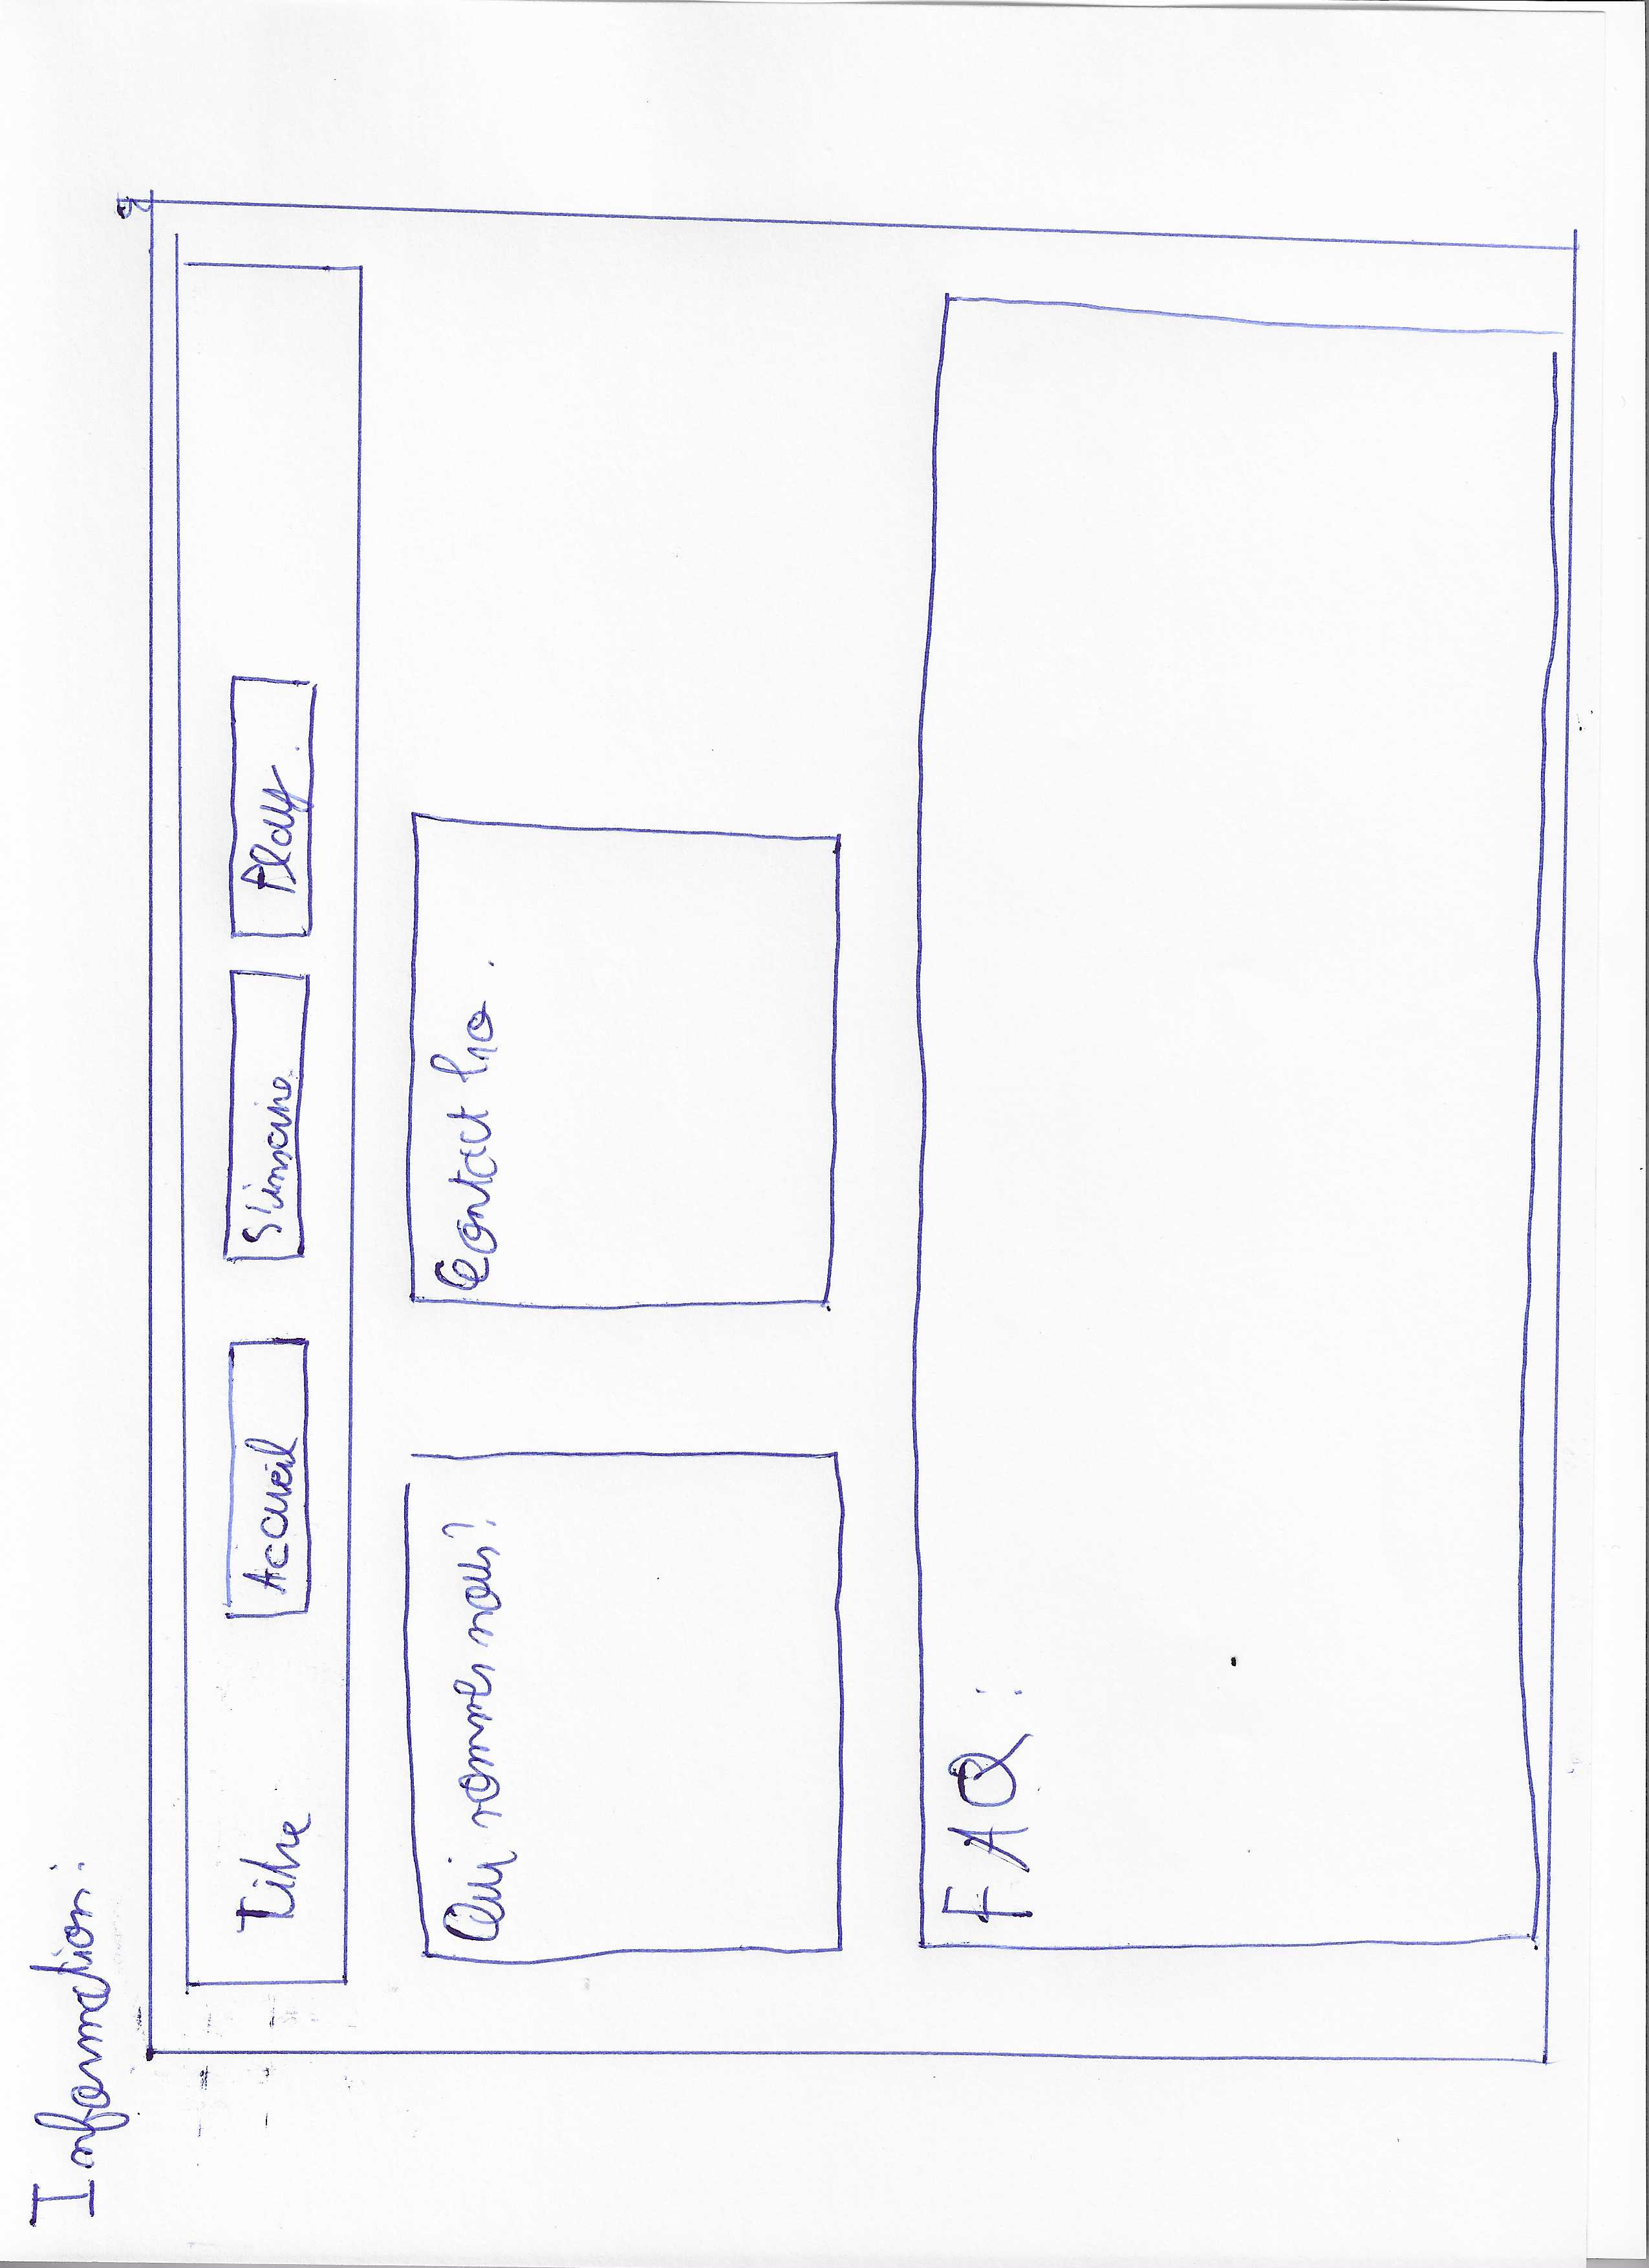 Information :
Titre Accueil S'inscrire Play.
Qui sommes nous? Contact Pro.
FAQ :